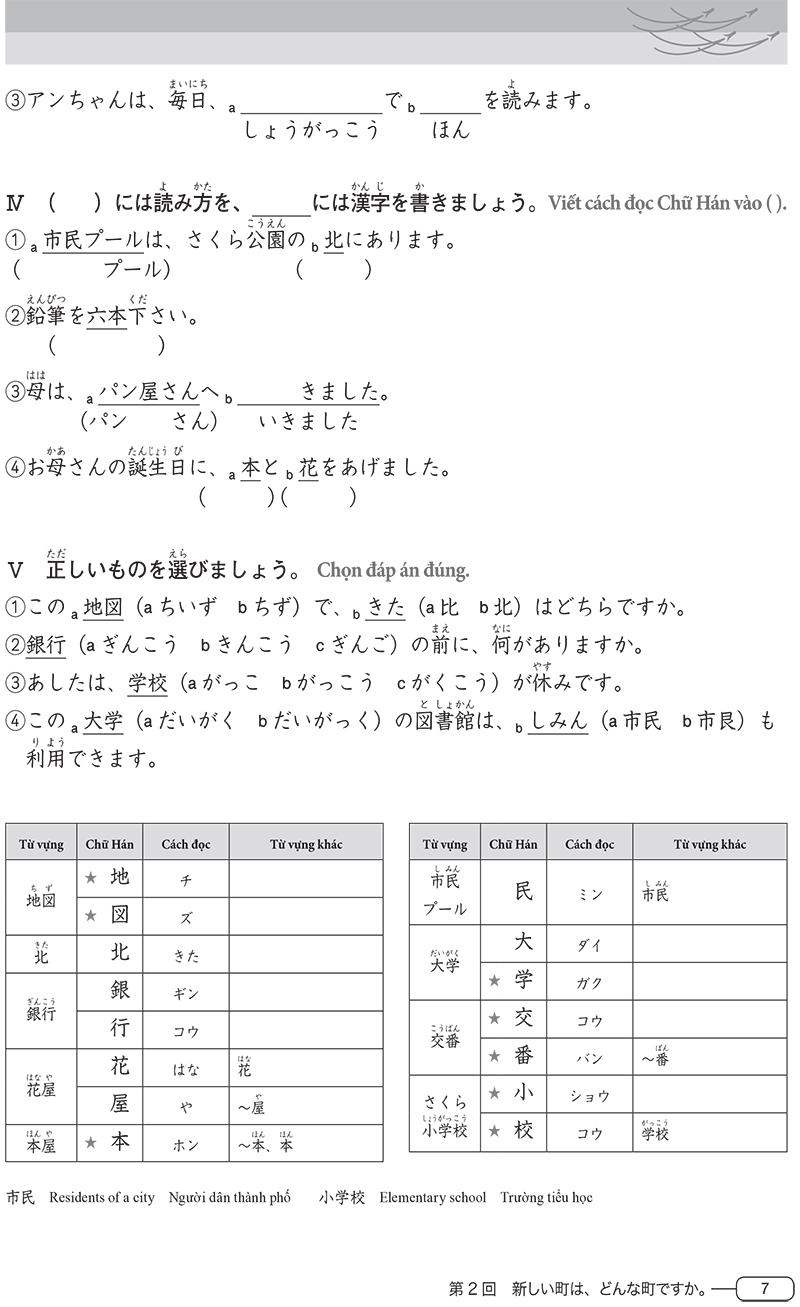 まいにち よ
③アンちゃんは、毎日、a＿＿＿＿＿＿＿でb＿＿＿を読みます。
しょうがっこう ほん
よ かた かん じ か
Ⅳ （ ）には読み方を、＿＿＿には漢字を書きましょう。Viết cách đọc Chữ Hán vào ( ).
こうえん
① a 市民プールは、さくら公園の b 北にあります。
（ プール） （ ）
えんぴつ くだ
②鉛筆を六本下さい。
（ ）
はは
③母は、a パン屋さんへ b ＿＿＿きました。
（パン さん） いきました
かあ たんじょう び
④お母さんの誕生日に、a 本と b 花をあげました。
（ ）（ ）
ただ えら
Ⅴ 正しいものを選びましょう。 Chọn đáp án đúng.
①この a 地図（a ちいず b ちず）で、b きた（a 比 b 北）はどちらですか。
まえ なに
②銀行（a ぎんこう b きんこう c ぎんご）の前に、何がありますか。
やす
③あしたは、学校（a がっこ b がっこう c がくこう）が休みです。
と しょかん
④この a 大学（a だいがく b だいがっく）の図書館は、b しみん（a 市民 b 市艮）も
り よう
利用できます。
Từ vựng Chữ Hán Cách đọc Từ vựng khác
ち ず
地図 ★ 地 チ
★ 図 ズ
きた
北 北 きた
ぎんこう
銀行 銀 ギン
行 コウ
はな や はな
花屋 花 はな 花
や
屋 や ～屋
ほん や ほん ほん
本屋 ★ 本 ホン ～本、本
Từ vựng Chữ Hán Cách đọc Từ vựng khác
し みん し みん
市民 民 ミン 市民
プール
だいがく
大学 大 ダイ
★ 学 ガク
こうばん
交番 ★ 交 コウ
ばん
★ 番 バン ～番
さくら ★ 小 ショウ
しょうがっこう がっこう
小学校 ★ 校 コウ 学校
市民 Residents of a city Người dân thành phố 小学校 Elementary school Trường tiểu học
第2回 新しい町は、どんな町ですか。 7